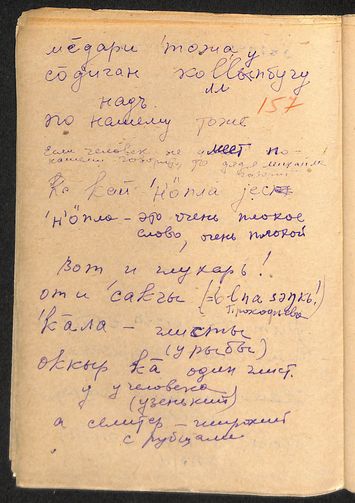 мēдари тожа, у
сōдиган
надъ.
157
по нашему тоже
Если человек не умеет по-
нашему говорить, то дядя михаила
Ка кай 'н'ӧпла jес
'н'ӧпла – это очень плохое
слово, очень плохой
Вот и глухарь!
от и 'сакчы
Прокофьева
'кāла – глисты
(у рыбы)
оккыр кā один глист.
у человека
(узенький)
а селитер – широкий
с рубцами